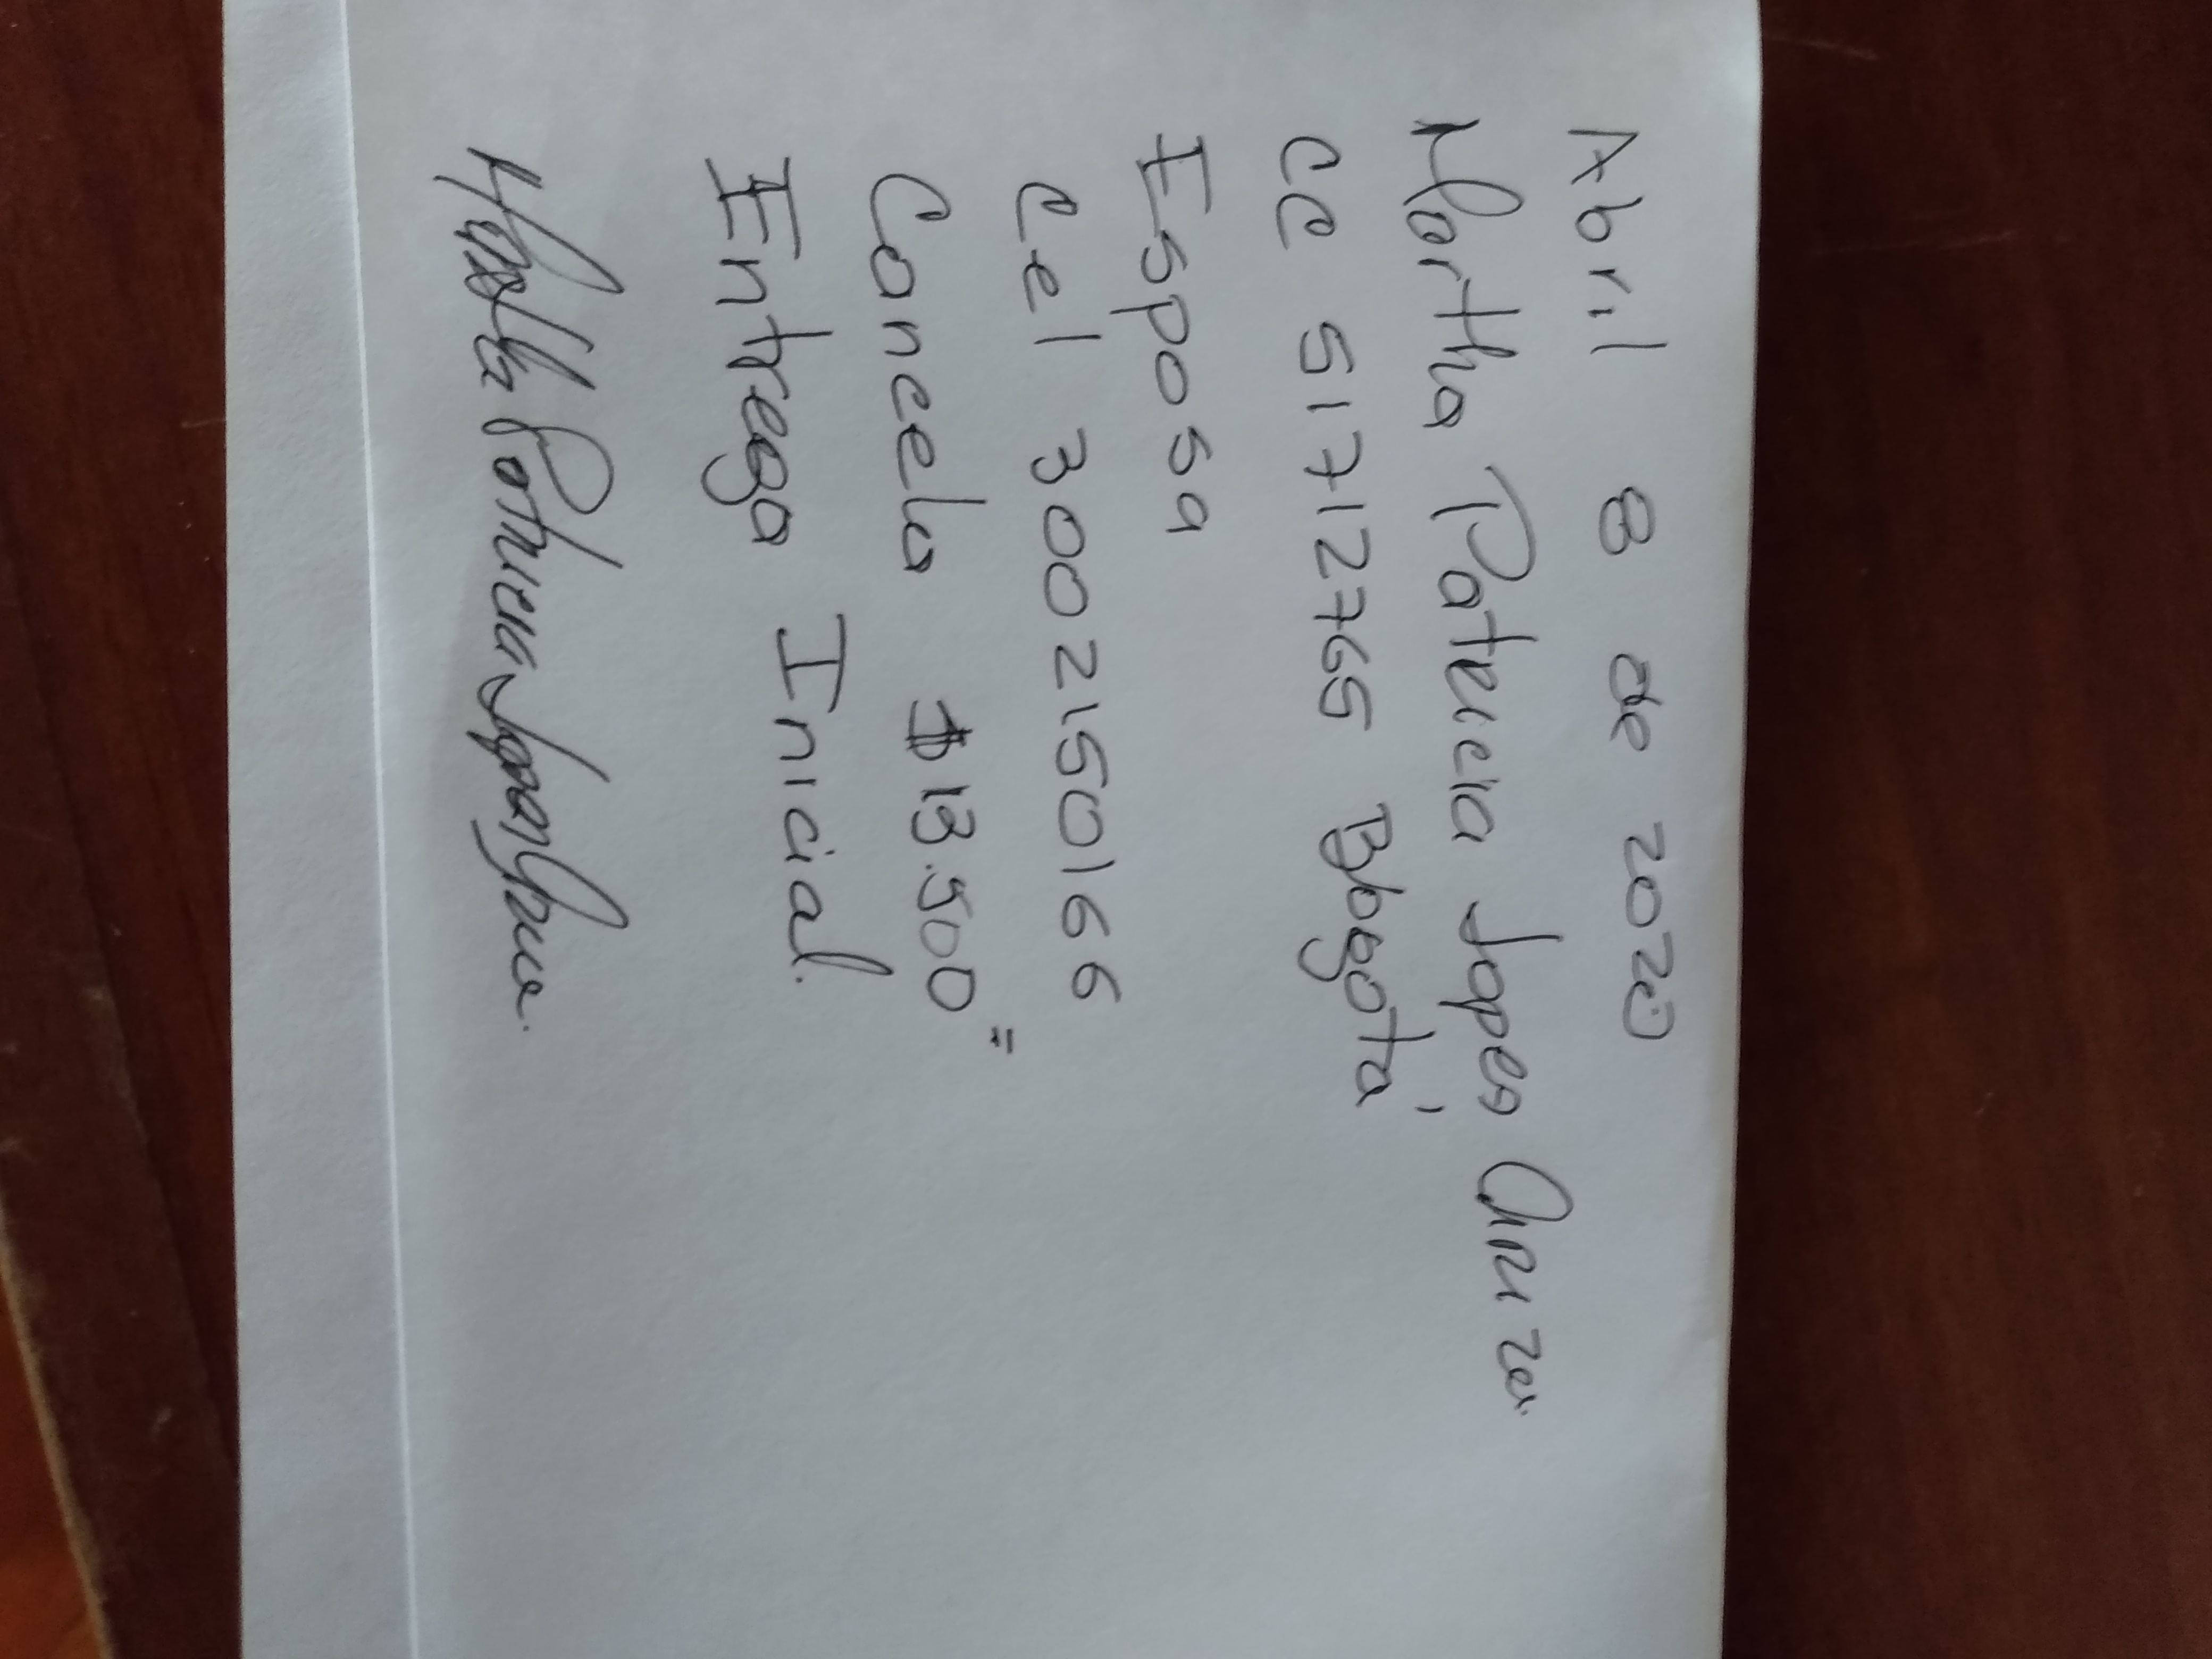 Abril 8 de 2020
Martha Patricia Lopes Ariza.
CC 51712765 Bogotá
Esposa
Cel 3002150166
Cancelo $13.500=
Entrega Inicial.
Martha Patricia Lopez Ariza.